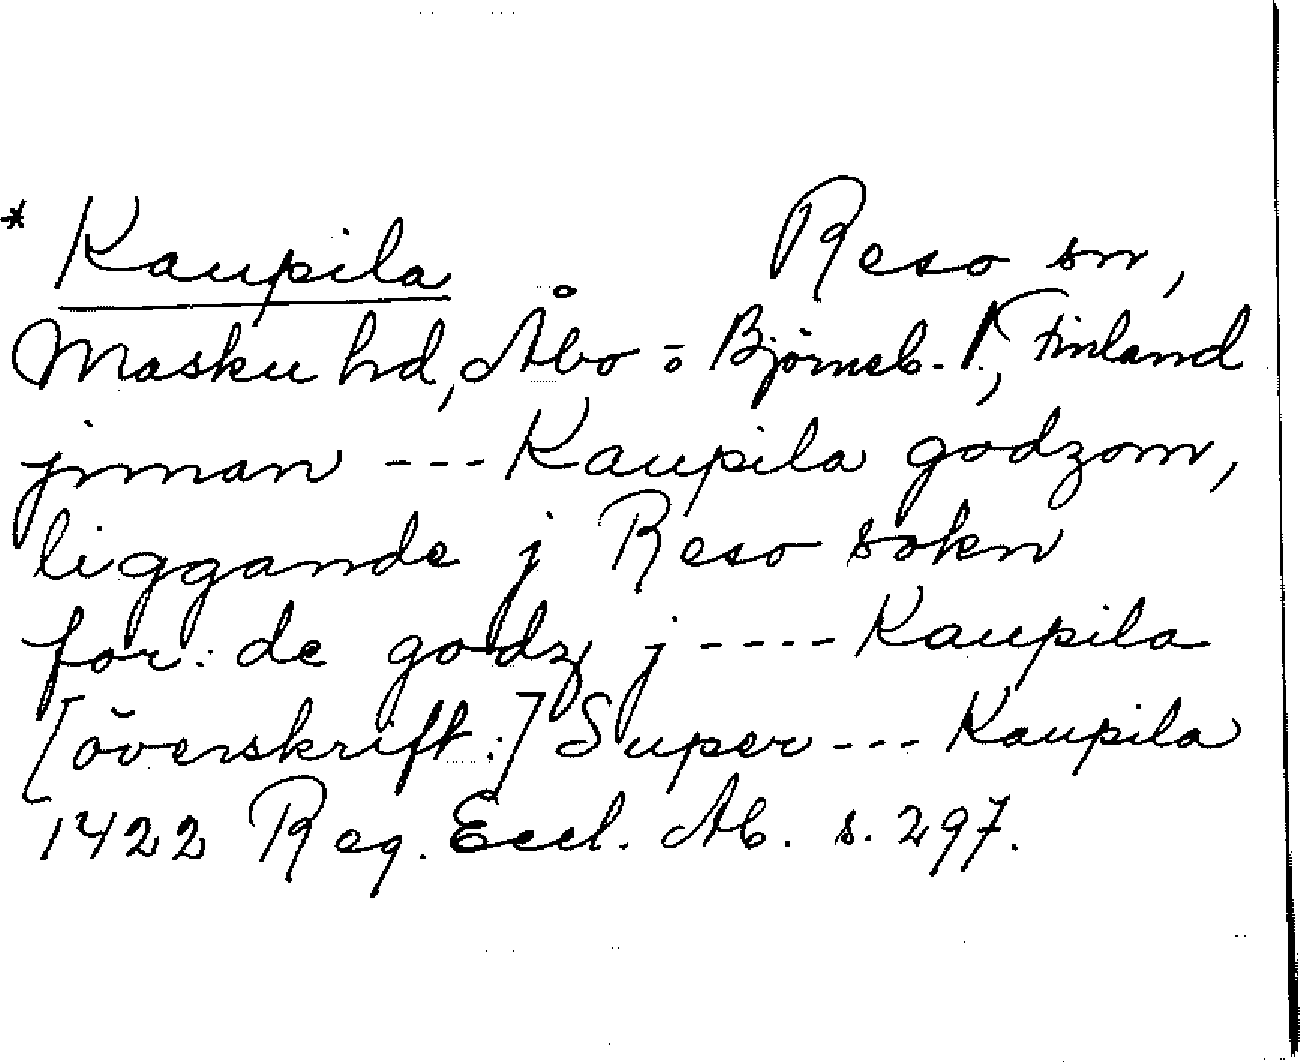 * Kaupila Reso sn,
Masku hd, Åbo o Björneb. l., Finland
jnnan --- Kaupila godzom,
liggande j Reso sokn
for: de godz j ---- Kaupila
[överskrift:] Super --- Kaupila
1422 Reg. Eccl. Ab. s. 297.